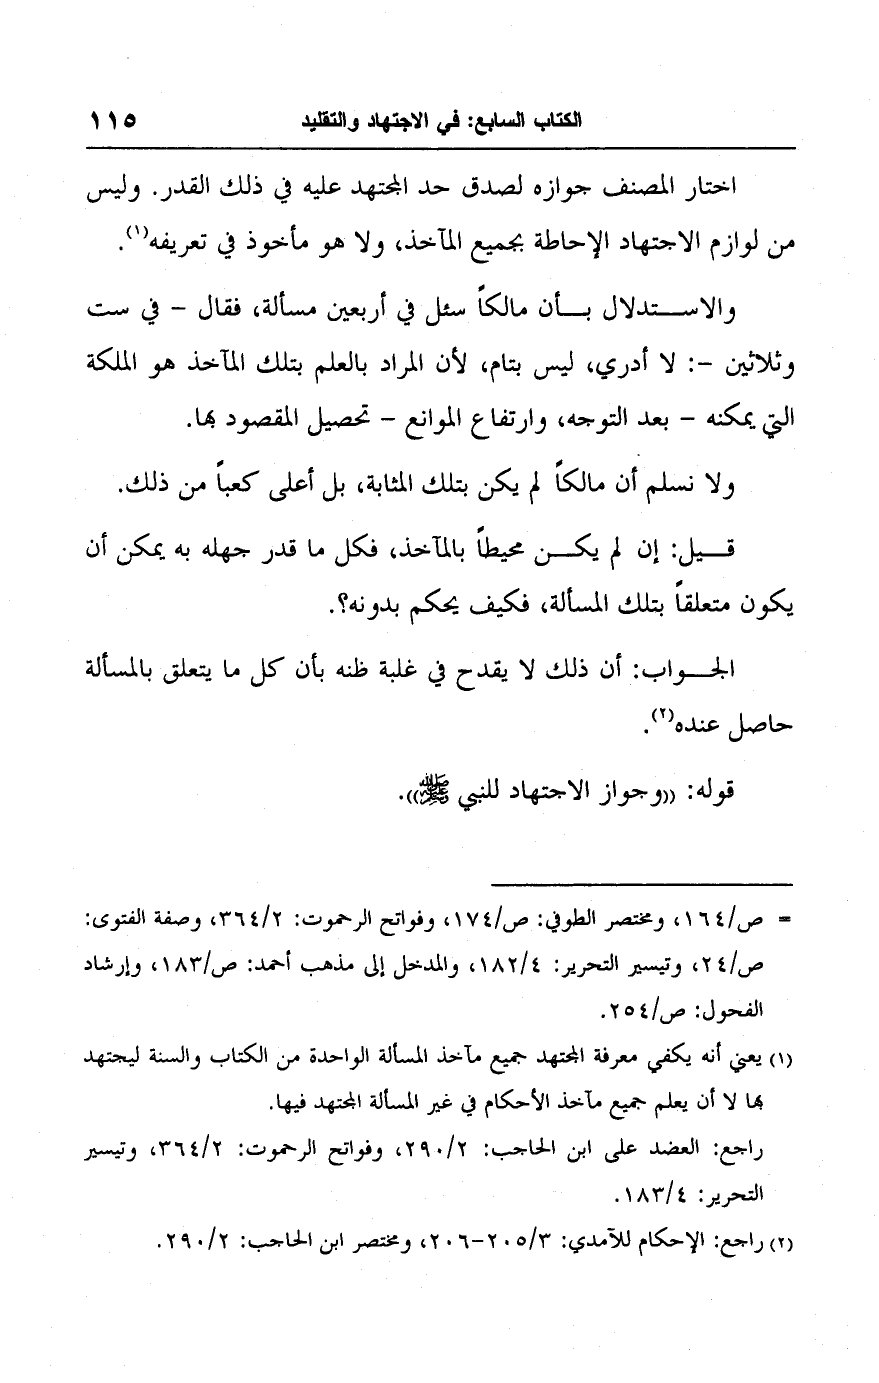 الكتاب السابع: في الاجتهاد والتقليد ١١٥
اختار المصنف جوازه لصدق حد المجتهد عليه في ذلك القدر. وليس
من لوازم الاجتهاد الإحاطة بجميع المآخذ، ولا هو مأخوذ في تعريفه(١).
والاستدلال بأن مالكاً سئل في أربعين مسألة، فقال – في ست
وثلاثين –: لا أدري، ليس بتام، لأن المراد بالعلم بتلك المآخذ هو الملكة
التي يمكنه – بعد التوجه، وارتفاع الموانع – تحصيل المقصود بها.
ولا نسلم أن مالكاً لم يكن بتلك المثابة، بل أعلى كعباً من ذلك.
قيل: إن لم يكن محيطاً بالمآخذ، فكل ما قدر جهله به يمكن أن
يكون متعلقاً بتلك المسألة، فكيف يحكم بدونه؟.
الجواب: أن ذلك لا يقدح في غلبة ظنه بأن كل ما يتعلق بالمسألة
حاصل عنده(٢).
قوله: ((وجواز الاجتهاد للنبي ﷺ)).
= ص/١٦٤، ومختصر الطوفي: ص/١٧٤، وفواتح الرحموت: ٣٦٤/٢، وصفة الفتوى:
ص/٢٤، وتيسير التحرير: ١٨٢/٤، والمدخل إلى مذهب أحمد: ص/١٨٣، وإرشاد
الفحول: ص/٢٥٤.
(١) يعني أنه يكفي معرفة المجتهد جميع مآخذ المسألة الواحدة من الكتاب والسنة ليجتهد
بها لا أن يعلم جميع مآخذ الأحكام في غير المسألة المجتهد فيها.
راجع: العضد على ابن الحاجب: ٢٩٠/٢، وفواتح الرحموت: ٣٦٤/٢، وتيسير
التحرير: ١٨٣/٤.
(٢) راجع: الإحكام للآمدي: ٢٠٥/٣-٢٠٦، ومختصر ابن الحاجب: ٢٩٠/٢.